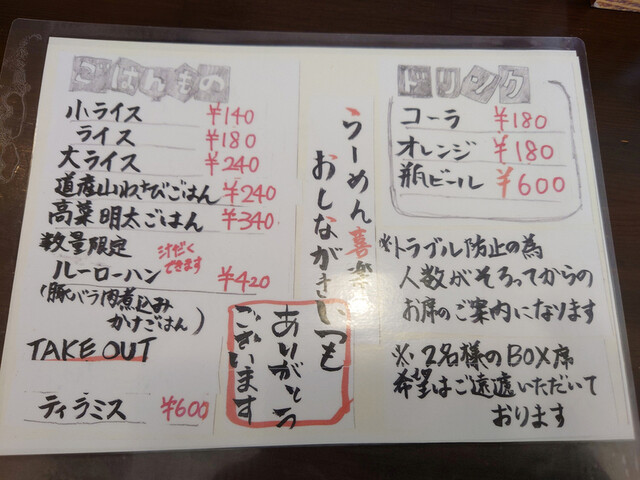 ごはんもの
小ライス ¥140
ライス ¥180
大ライス ¥240
道産山わさびごはん ¥240
高菜明太ごはん ¥340
数量限定
汁だく
できます
ルーローハン ¥420
(豚バラ肉煮込み
かけごはん)
TAKE OUT
ティラミス ¥600
らーめん喜楽
おしながき
いつも
ありがとう
ございます
ドリンク
コーラ ¥180
オレンジ ¥180
瓶ビール ¥600
※トラブル防止の為
人数がそろってからの
お席のご案内になります
※2名様のBOX席
希望はご遠慮いただいて
おります